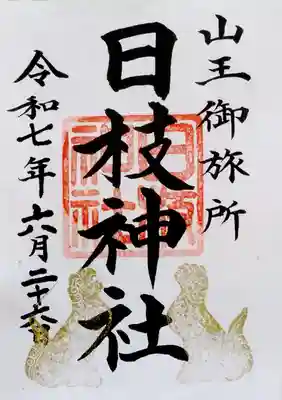 山王御旅所
日枝神社
令和七年六月二十六日